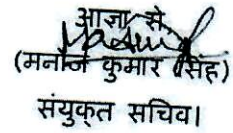 आज्ञा से
(मनोज कुमार सिंह)
संयुक्त सचिव।